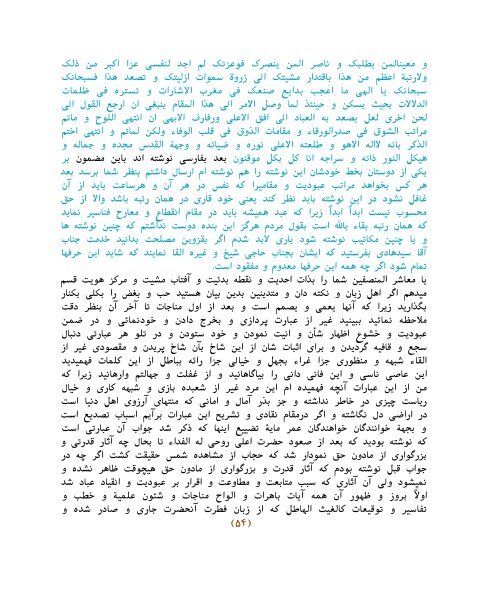 و معینالمن یطلبک و ناصر المن ینصرک فوعزتک لم اجد لنفسی عزا اکبر من ذلک
ولارتبة اعظم من هذا باقتدار مشیتک الی زروة سموات ازلیتک و تصعد هذا فسبحانک
سبحانک یا الهی ما اعجب بدایع صنعک فی مغرب الاشارات و تستره فی ظلمات
الدلالات بحیث یسکن و حینئذ لما وصل الامر الی هذا المقام ینبغی ان ارجع القول الی
لحن اخری لعل یصعد به العباد الی افق الاعلی ورفارف الابهی ان انتهی اللوح و ماتم
مراتب الشوق فی صدرالورقاء و مقامات الذوق فی قلب الوفاء ولکن لماتم و انتهی اختم
الذکر بانه لااله الاهو و طلعته الاعلی نوره و ضیائه و وجهة القدس مجده و جماله و
هیکل النور ذاته و سراجه انا کل بکل موقنون بعد بفارسی نوشته اند باین مضمون بر
یکی از دوستان بخط خودشان این نوشته را هم نوشته ام ارسال داشتم بنظر شما برسد بعد
هر کس بخواهد مراتب عبودیت و مقامیرا که نفس در هر آن و هرساعت باید از آن
غافل نشود در این نوشته باید نظر کند یعنی خود قاری در همان رتبه باشد والا از حق
محسوب نیست ابداً ابداً زیرا که عبد همیشه باید در مقام انقطاع و معارج فناسیر نماید
که همان رتبه بقاء بالله است بقول مردم هرگز این بنده دوست نداشتم که چنین نوشته ها
و یا چنین مکاتیب نوشته شود باری لابد شدم اگر بقزوین مصلحت بدانید خدمت جناب
آقا سیدهادی بفرستید که ایشان بجناب حاجی شیخ و غیره القا نمایند که شاید این حرفها
تمام شود اگر چه همه این حرفها معدوم و مفقود است.
یا معاشر المنصفین شما را بذات احدیت و نقطه بدئیت و آفتاب مشیت و مرکز هویت قسم
میدهم اگر اهل زبان و نکته دان و متدینین بدین بیان هستید حب و بغض را بکلی بکنار
بگذارید زیرا که آنها یعمی و یصمم است و بعد از اول مناجات تا آخر آن بنظر دقت
ملاحظه نمائید ببینید غیر از عبارت پردازی و بخرج دادن و خودنمائی و در ضمن
عبودیت و خشوع اظهار شأن و انیت نمودن و خود ستودن و در تلو هر عبارتی دنبال
سجع و قافیه گردیدن و برای اثبات شان از این شاخ بآن شاخ پریدن و مقصودی غیر از
القاء شبهه و منظوری جزا غراء بجهل و خیالی جزا رائه بباطل از این کلمات فهمیدید
این عاصی ناسی و این فانی دانی را بیاگاهانید و از غفلت و جهالتم وارهانید زیرا که
من از این عبارات آنچه فهمیده ام این مرد غیر از شعبده بازی و شبهه کاری و خیال
ریاست چیزی در خاطر نداشته و جز بذر آمال و امانی که منتهای آرزوی اهل دنیا است
در اراضی دل نگاشته و اگر درمقام نقادی و تشریح این عبارات برآیم اسباب تصدیع است
و بجهة خوانندگان خواهندگان عمر مایهٔ تضییع اینها که ذکر شد جواب آن عبارتی است
که نوشته بودید که بعد از صعود حضرت اعلی روحی له الفداء تا بحال چه آثار قدرتی و
بزرگواری از مادون حق نمودار شد که حجاب از مشاهده شمس حقیقت کشت اگر چه در
جواب قبل نوشته بودم که آثار قدرت و بزرگواری از مادون حق هیچوقت ظاهر نشده و
نمیشود ولی آن آثاری که سبب متابعت و مطاوعت و اقرار بر عبودیت و انقیاد عباد شد
اولاً بروز و ظهور آن همه آیات باهرات و الواح مناجات و شئون علمیة و خطب و
تفاسیر و توقیعات کالغیث الهاطل که از زبان فطرت آنحضرت جاری و صادر شده و
(۵۴)